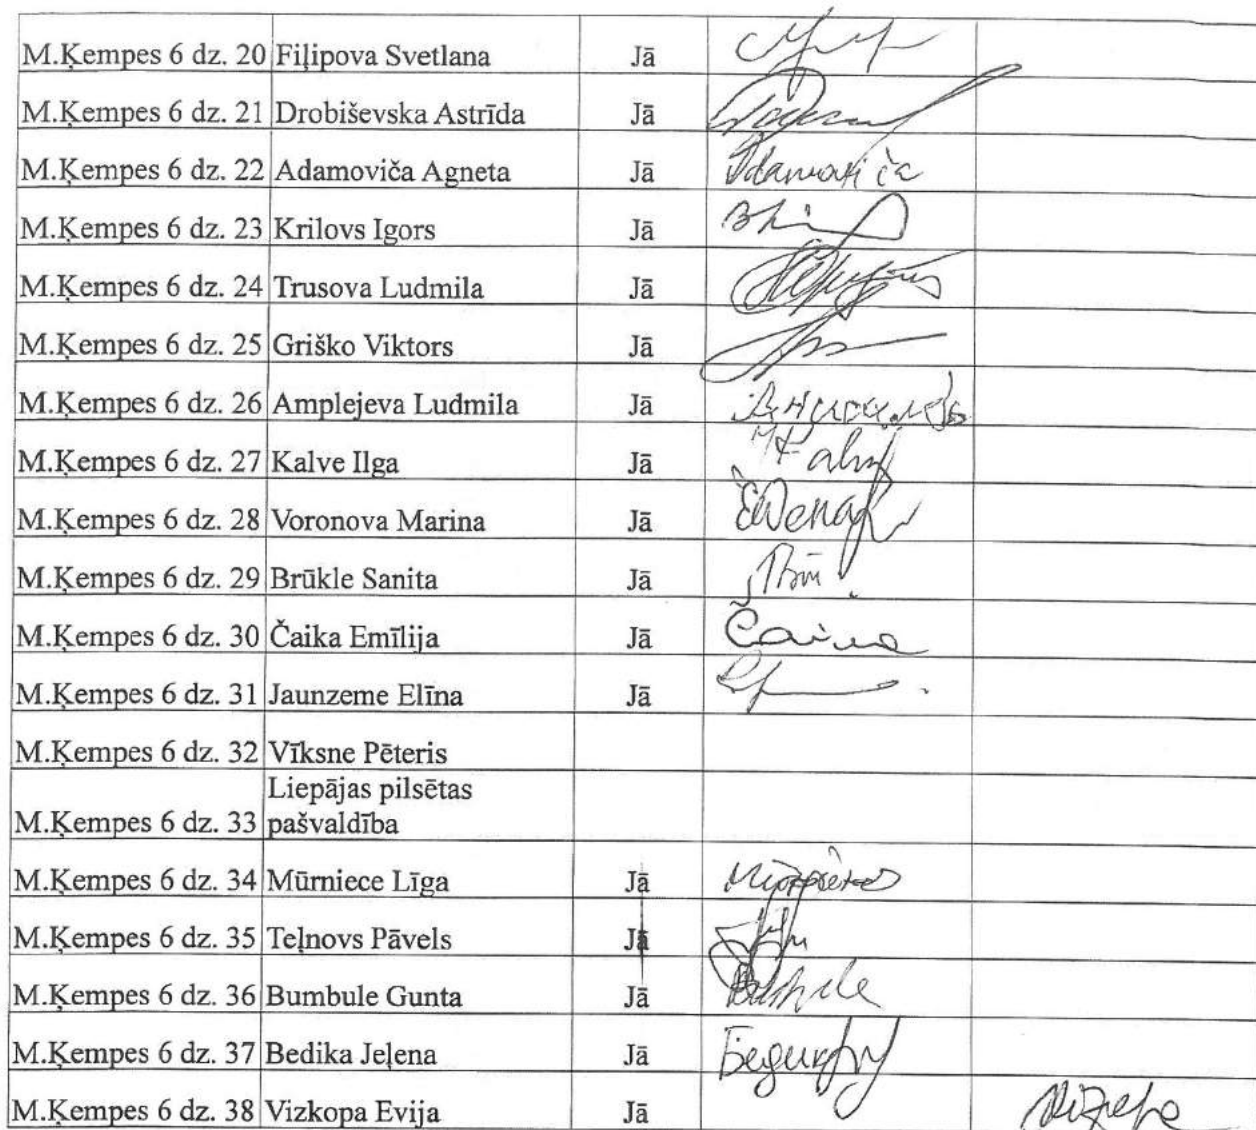 M.Ķempes 6 dz. 20 Fiļipova Svetlana Jā
M.Ķempes 6 dz. 21 Drobiševska Astrīda Jā
M.Ķempes 6 dz. 22 Adamoviča Agneta Jā Adamoviča
M.Ķempes 6 dz. 23 Krilovs Igors Jā
M.Ķempes 6 dz. 24 Trusova Ludmila Jā
M.Ķempes 6 dz. 25 Griško Viktors Jā
M.Ķempes 6 dz. 26 Amplejeva Ludmila Jā
M.Ķempes 6 dz. 27 Kalve Ilga Jā
M.Ķempes 6 dz. 28 Voronova Marina Jā
M.Ķempes 6 dz. 29 Brūkle Sanita Jā
M.Ķempes 6 dz. 30 Čaika Emīlija Jā
M.Ķempes 6 dz. 31 Jaunzeme Elīna Jā
M.Ķempes 6 dz. 32 Vīksne Pēteris
Liepājas pilsētas
M.Ķempes 6 dz. 33 pašvaldība
M.Ķempes 6 dz. 34 Mūrniece Līga Jā
M.Ķempes 6 dz. 35 Teļnovs Pāvels Jā
M.Ķempes 6 dz. 36 Bumbule Gunta Jā
M.Ķempes 6 dz. 37 Bedika Jeļena Jā
M.Ķempes 6 dz. 38 Vizkopa Evija Jā